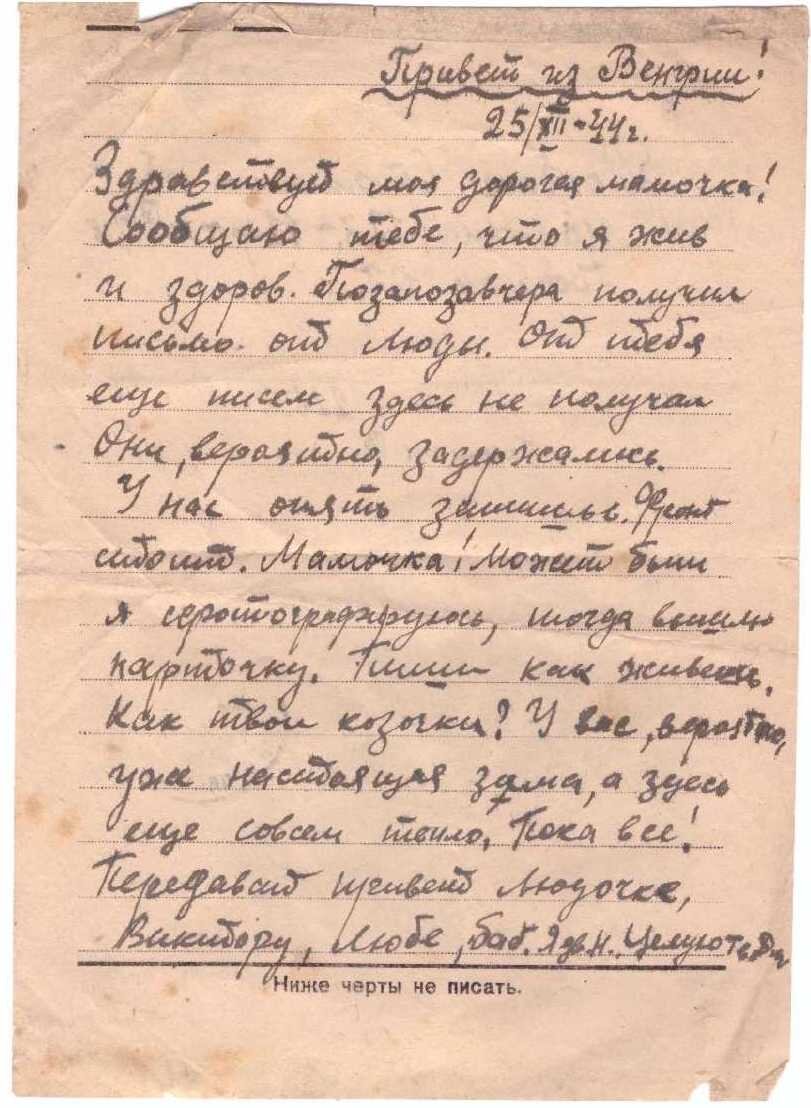 Привет из Венгрии!
25/XII-44г.
Здравствуй моя дорогая мамочка!
Сообщаю тебе, что я жив
и здоров. Позапозавчера получил
письмо от Люды. От тебя
еще писем здесь не получал
Они, вероятно, задержались.
У нас опять затишье. Фронт
стоит. Мамочка! Может быть
я сфотографируюсь, тогда вышлю
карточку. Пиши как живешь.
Как твои козочки? У вас, вероятно,
уже настоящая зима, а здесь
еще совсем тепло. Пока все!
Передавай привет Людочке,
Виктору, Любе, баб. Целую
Ниже черты не писать.